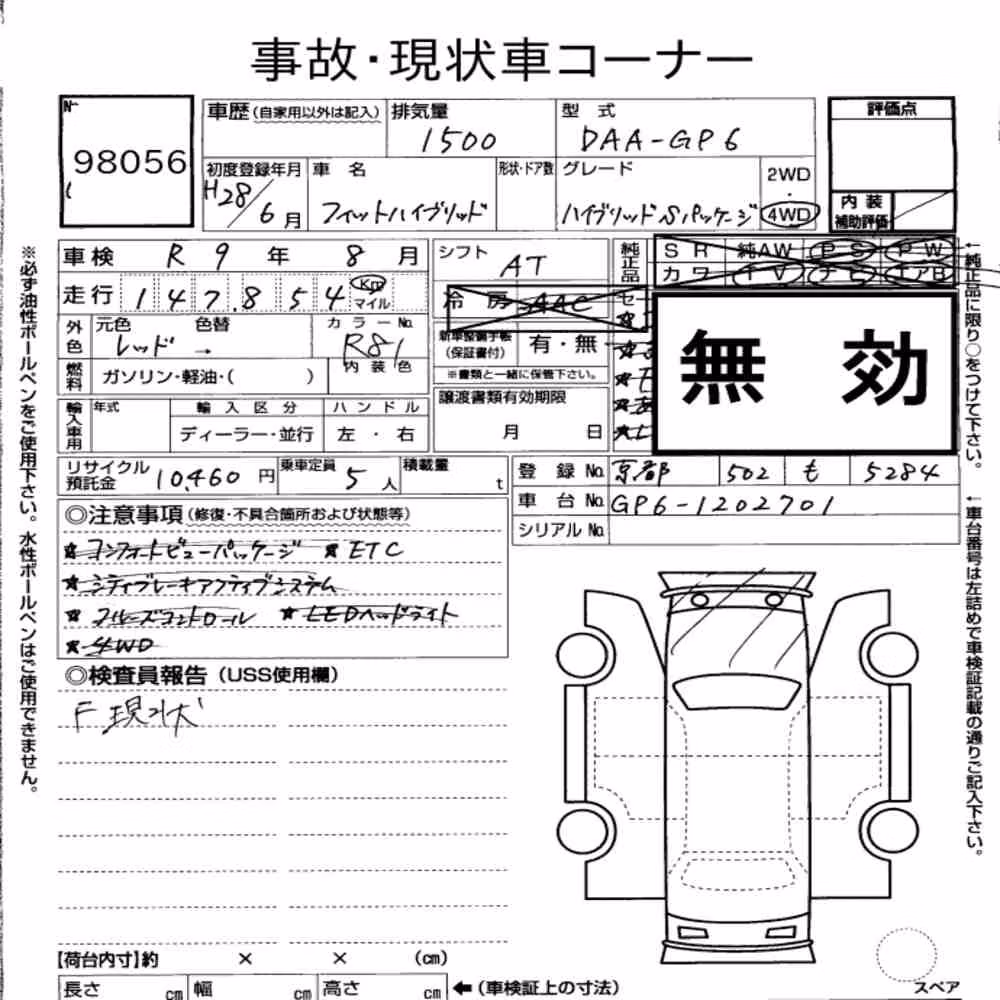 事故・現状車コーナー
№
98056
車歴(自家用以外は記入)
排気量
1500
型 式
DAA-GP6
評価点
初度登録年月
H28/6月
車 名
フィットハイブリッド
形状・ドア数
グレード
ハイブリッド Sパッケージ
2WD
・
4WD
内 装
補助評価
車検 R 9 年 8 月
シフト
AT
純正品
S R 純AW P S P W
カ ワ T V ナ ビ エアB
走行 147,854 Km
マイル
冷 房 AAC
外色
元色 色替
レッド →
カラー№
R81
内 装 色
新車整備手帳
(保証書付)
有・無
※書類と一緒に保管下さい。
無 効
燃料
ガソリン・軽油・( )
輸入車用
年式
輸 入 区 分
ハ ン ド ル
ディーラー・並行
左 ・ 右
譲渡書類有効期限
月 日
リサイクル
預託金
10,460 円
乗車定員
5 人
積載量
t
登 録 № 京都 502 も 5284
車 台 № GP6-1202701
シリアル №
◎注意事項(修復・不具合箇所および状態等)
★ コンフォートビューパッケージ ★ ETC
★ シティブレーキアクティブシステム
★ クルーズコントロール ★ LEDヘッドライト
★ 4WD
◎検査員報告(USS使用欄)
F 現状
【荷台内寸】約 × × (cm)
長さ cm 幅 cm 高さ cm
←(車検証上の寸法)
スペア
※必ず油性ボールペンをご使用下さい。水性ボールペンはご使用できません。
←純正品に限り○をつけて下さい。
←車台番号は左詰めで車検証記載の通りご記入下さい。